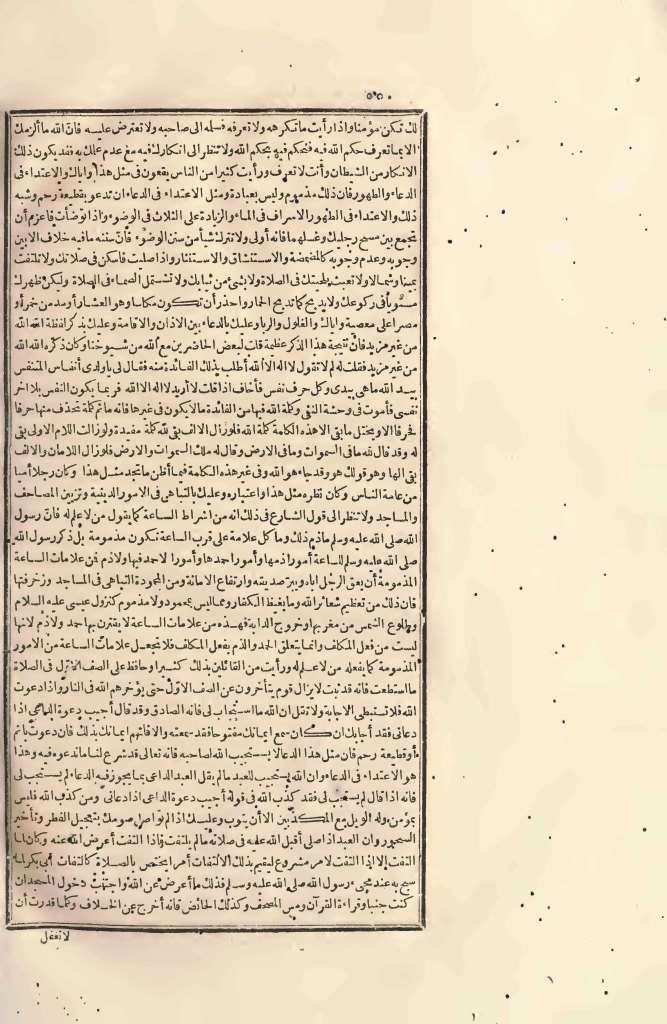 ٥٥٠
لك تكن مؤمنا واذا رأيت ما تكرهه ولا تعرفه فسلمه الى صاحبه ولا تعترض عليه فان الله ما ألزمك
الا بما تعرف حكم الله فيه فتحكم فيه بحكم الله ولا تنظر الى انكارك فيه مع عدم علمك به فقد يكون ذلك
الانكار من الشيطان وأنت لا تعرف ورأيت كثيرا من الناس يقعون في مثل هذا واياك والاعتداء فى
الدعاء والطهور فان ذلك مذموم وليس بعبادة ومثل الاعتداء فى الدعاء ان تدعو بقطيعة رحم وشبه
ذلك والاعتداء فى الطهور الاسراف فى الماء والزيادة على الثلاث فى الوضوء واذا توضأت فاعزم أن
تجمع بين مسح رجليك وغسلهما فانه أولى ولا تترك شيأ من سنن الوضوء فان سننه ما فيه خلاف الا بين
وجوبه وعدم وجوبه كالمضمضة والاستنشاق والاستنثار واذا صليت فاسكن فى صلاتك ولا تلتفت
يمينا وشمالا ولا تعبث بلحيتك فى الصلاة ولا بشئ من ثيابك ولا تشتمل الصماء فى الصلاة وليكن ظهرك
مستويا فى ركوعك ولا تدبح كما يدبح الحمار واحذر أن تكون مكاسا وهو العشار أو مدمن خمر أو
مصرا على معصية واياك والغلول والربا وعليك بالدعاء بين الاذان والاقامة وعليك بذكر لفظة الله الله
من غير مزيد فان نتيجة هذا الذكر عظيمة قلت لبعض الحاضرين مع الله من شيوخنا وكان ذكره الله الله
من غير مزيد فقلت له لم لا تقول لا اله الا الله أطلب بذلك الفائدة منه فقال لى يا ولدى أنفاس المتنفس
بيد الله ما هى بيدى وكل حرف نفس فأخاف اذا قلت لا أريد لا اله الا الله فربما يكون النفس بلا آخر
نفسى فأموت فى وحشة النفى وكلمة الله فيها من الفائدة ما لا يكون فى غيرها فانه ما ثم كلمة تحذف منها حرفا
فحرفا الا ويختل ما بقى الا هذه الكلمة كلمة الله فلو زال الالف بقى لله كلمة مفيدة ولو زالت اللام الاولى بقى
له وقد قال لله ما فى السموات وما فى الارض وقال له ملك السموات والارض فلو زال اللامان والالف
بقى الها وهو قولك هو وقد جاء هو الله وفى غير هذه الكلمة فيما أظن ما تجد مثل هذا وكان رجلا أميا
من عامة الناس وكان نظره مثل هذا واعتباره وعليك بالتباهى فى الامور الدينية وتزيين المصاحف
والمساجد ولا تنظر الى قول الشارع فى ذلك انه من اشراط الساعة كما يقول من لا علم له فان رسول
الله صلى الله عليه وسلم ما ذم ذلك وما كل علامة على قرب الساعة تكون مذمومة بل ذكر رسول الله
صلى الله عليه وسلم للساعة أمورا ذمها وأمورا حمدها وأمورا لا حمد فيها ولا ذم فمن علامات الساعة
المذمومة أن يعق الرجل أباه ويبر صديقه وارتفاع الامانة ومن المحمودة التباهى فى المساجد وزخرفتها
فان ذلك من تعظيم شعائر الله وما يغيظ الكفار ومما ليس بمحمود ولا مذموم كنزول عيسى عليه السلام
وطلوع الشمس من مغربها وخروج الدابة فهذه من علامات الساعة لا يقترن بها حمد ولا ذم لانها
ليست من فعل المكلف وانما يتعلق الحمد والذم بفعل المكلف فلا تجعل علامات الساعة من الامور
المذمومة كما يفعله من لا علم له ورأيت من القائلين بذلك كثيرا وحافظ على الصف الاول فى الصلاة
ما استطعت فانه قد ثبت لا يزال قوم يتأخرون عن الصف الاول حتى يؤخرهم الله فى النار واذا دعوت
الله فلا تستبطئ الاجابة ولا تقل ان الله ما استجاب لى فانه الصادق وقد قال أجيب دعوة الداعى اذا
دعانى فقد أجابك ان كان سمع ايمانك مفتوحا فقد سمعته والا فاتهم ايمانك بذلك فان دعوت باثم
أو قطيعة رحم فان مثل هذا الدعاء لا يستجيب الله لصاحبه فانه تعالى قد شرع لنا ما ندعوه فيه وهذا
هو الاعتداء فى الدعاء وان الله يستجيب للعبد ما لم يقل العبد الداعى بما يجوز فيه الدعاء لم يستجب لى
فانه اذا قال لم يستجب لى فقد كذب الله فى قوله أجيب دعوة الداعى اذا دعانى ومن كذب الله فليس
بمؤمن وله الويل مع المكذبين الا أن يتوب وعليك اذا لم تواصل صومك بتعجيل الفطر وتأخير
السحور وان العبد اذا صلى أقبل الله عليه فى صلاته ما لم يلتفت فاذا التفت أعرض الله عنه وكان لما
التفت الا اذا التفت لامر مشروع ليقيم بذلك الالتفات أمرا يختص بالصلاة كالتفات أبى بكر لما
سبح به عند مجىء رسول الله صلى الله عليه وسلم فذلك ما أعرض عن الله واجتنب دخول المسجد ان
كنت جنبا وقراءة القرآن ومس المصحف وكذلك الحائض فانه أخرج عن الخلاف وكلما قدرت أن
لا تفعل